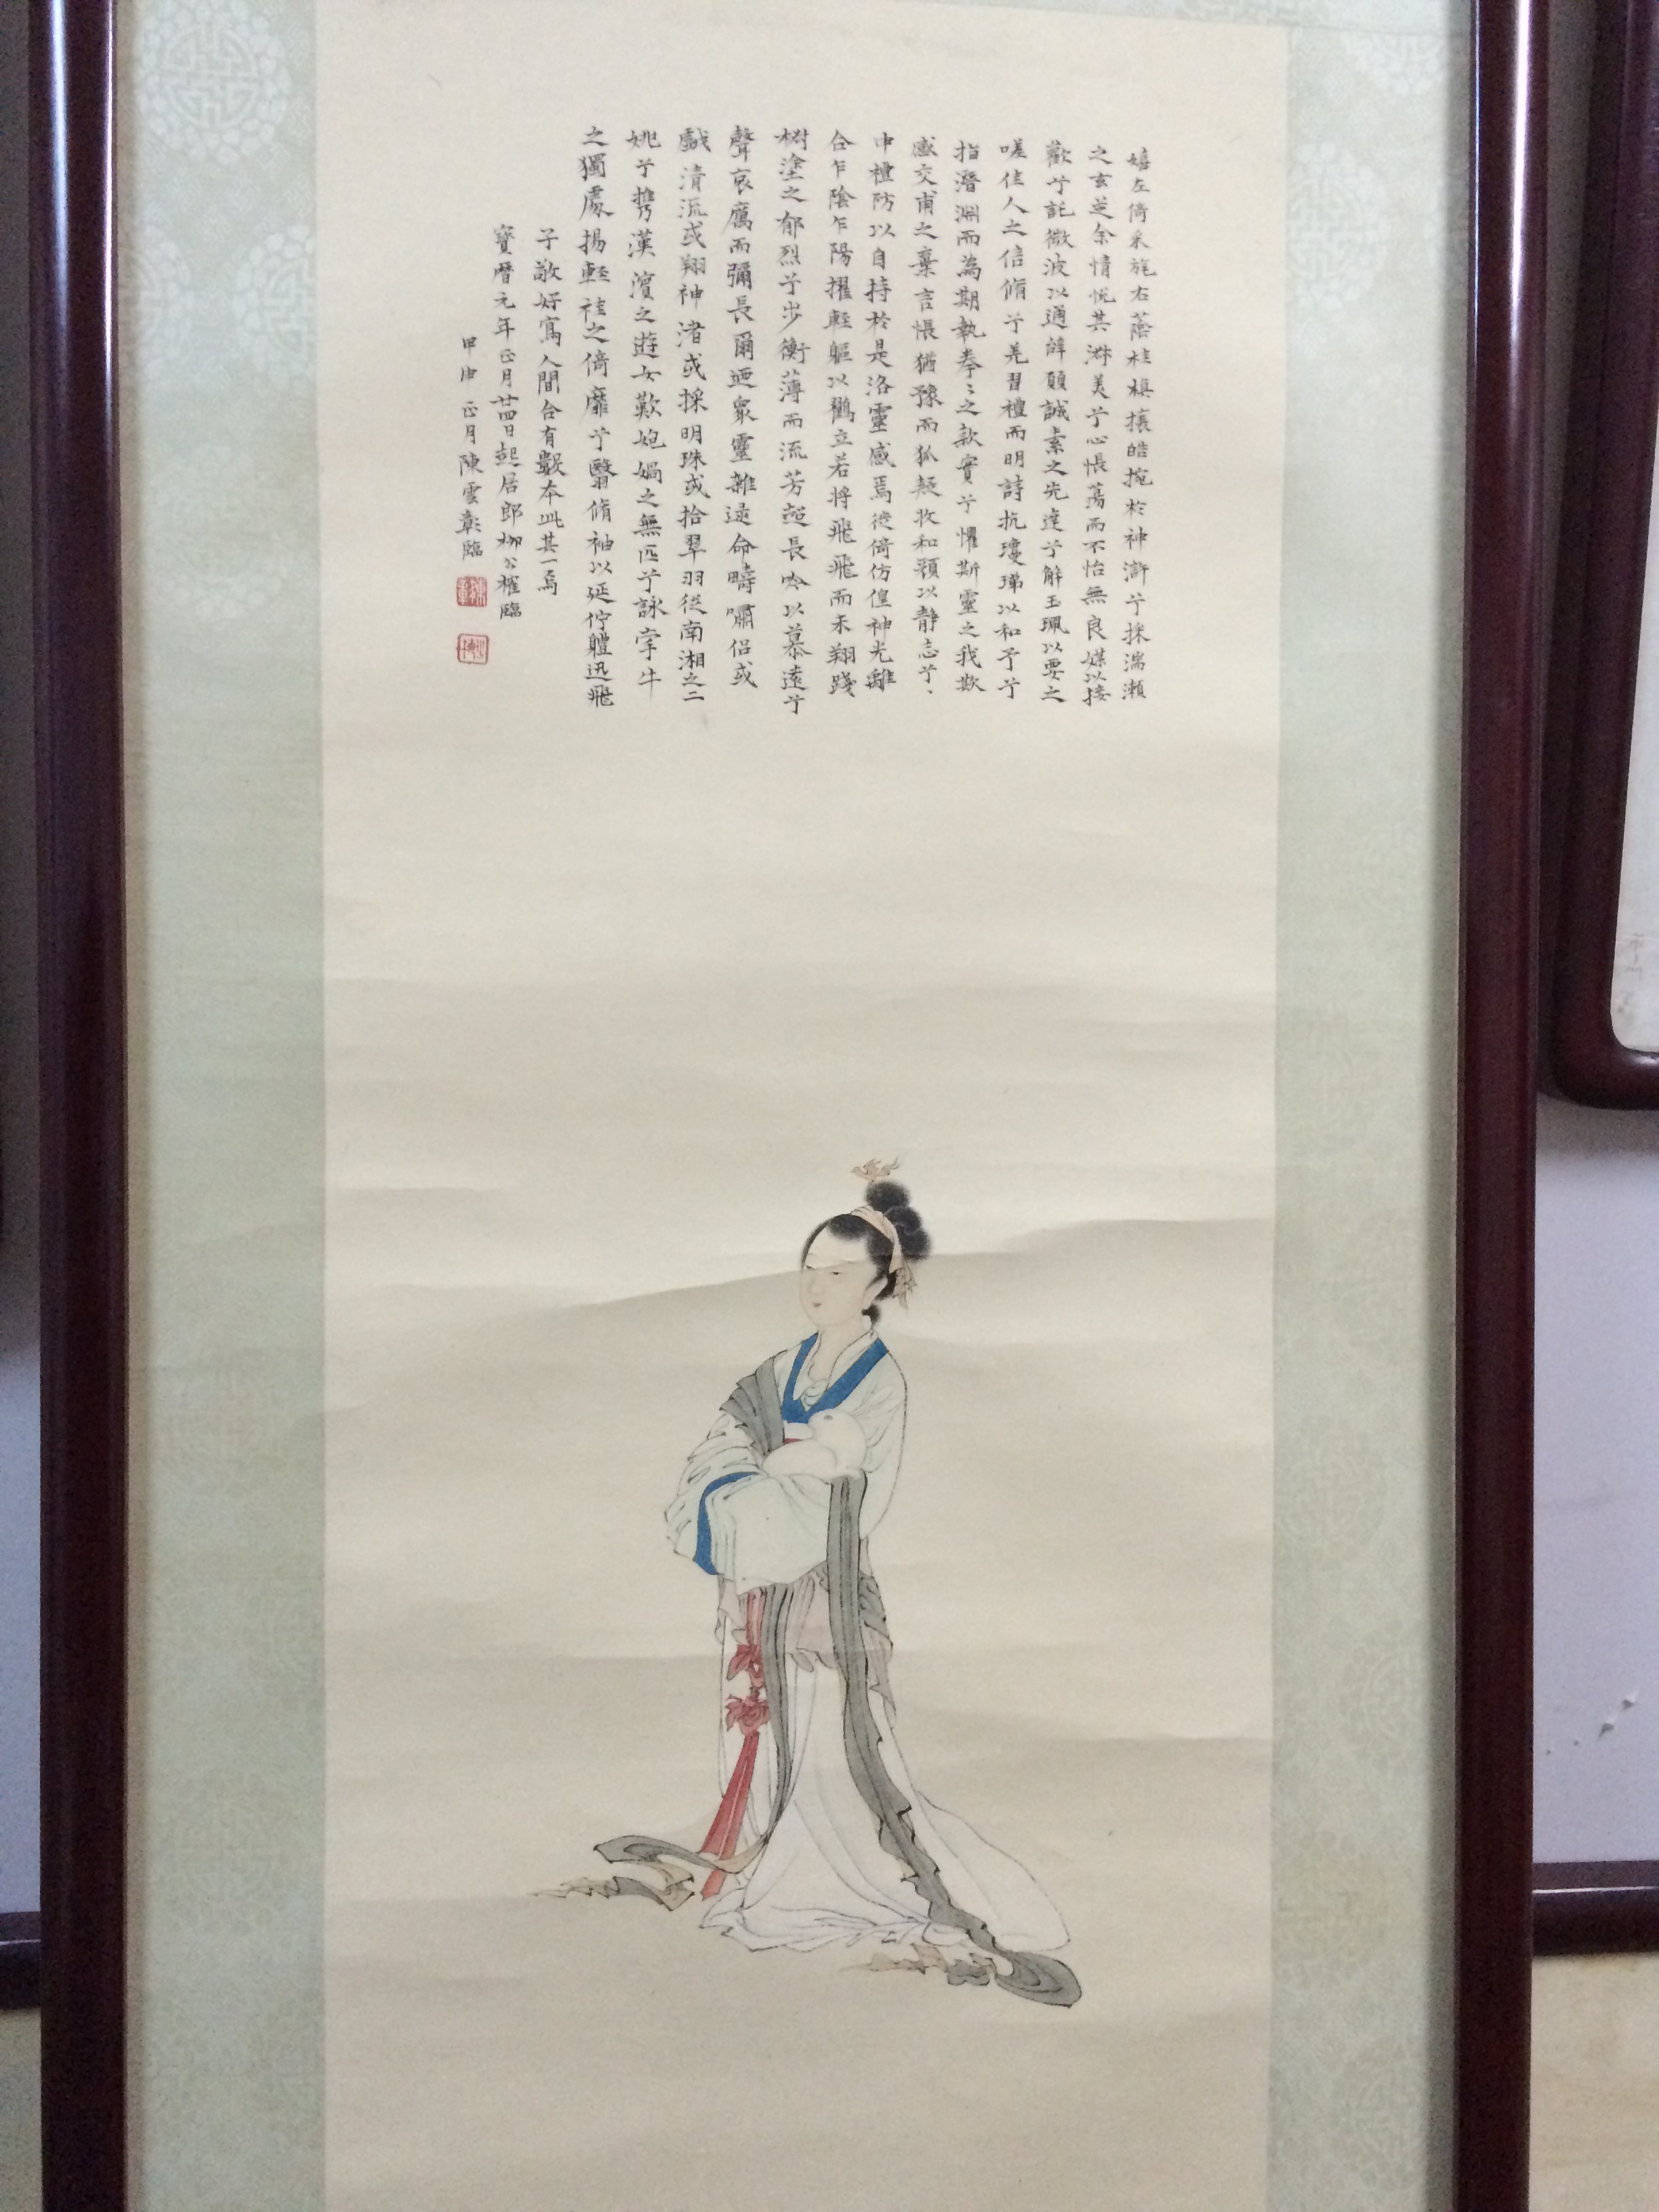 嬉左倚采旄右蔭桂旗攘皓捥於神滸兮採湍瀨
之玄芝余情悅其淑美兮心悵蕩而不怡無良媒以接
歡兮託微波以通辭願誠素之先達兮解玉珮以要之
嗟佳人之信脩兮羌習禮而明詩抗瓊珶以和予兮
指潛淵而為期執拳〻之款實兮懼斯靈之我欺
感交甫之棄言悵猶豫而狐疑收和顏以静志兮、
申禮防以自持於是洛靈感焉徙倚仿偟神光離
合乍陰乍陽擢輕軀以鶴立若將飛飛而未翔踐
樹塗之郁烈兮步衡薄而流芳超長吟以慕遠兮
聲哀厲而彌長爾迺衆靈雜遝命疇嘯侣或
戲清流或翔神渚或採明珠或拾翠羽從南湘之二
姚兮攜漢濱之遊女歎炮媧之無匹兮詠牽牛
之獨處揚輕袿之倚靡兮翳脩袖以延佇軆迅飛
子敬好寫人間合有數本此其一焉
寶曆元年正月廿四日起居郎柳公權臨
甲申正月陳雲彰臨